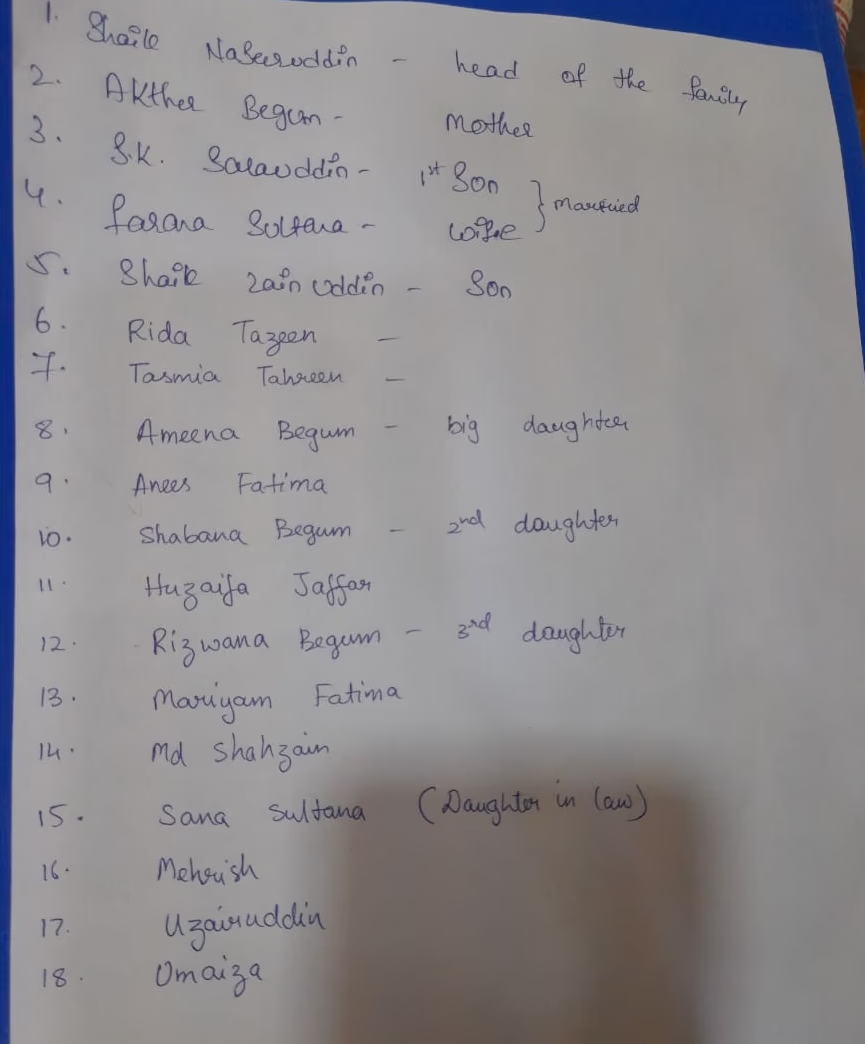 1. Shaik Naseeruddin - head of the family
2. Akther Begum - Mother
3. S.K. Salauddin - 1st Son } Married
4. Farana Sultana - wife
5. Shaik Zain uddin - Son
6. Rida Tazeen -
7. Tasmia Tahreen -
8. Ameena Begum - big daughter
9. Anees Fatima
10. Shabana Begum - 2nd daughter
11. Huzaifa Jaffar
12. Rizwana Begum - 3rd daughter
13. Mariyam Fatima
14. Md Shahzain
15. Sana Sultana (Daughter in law)
16. Mehrish
17. Uzairuddin
18. Umaiza